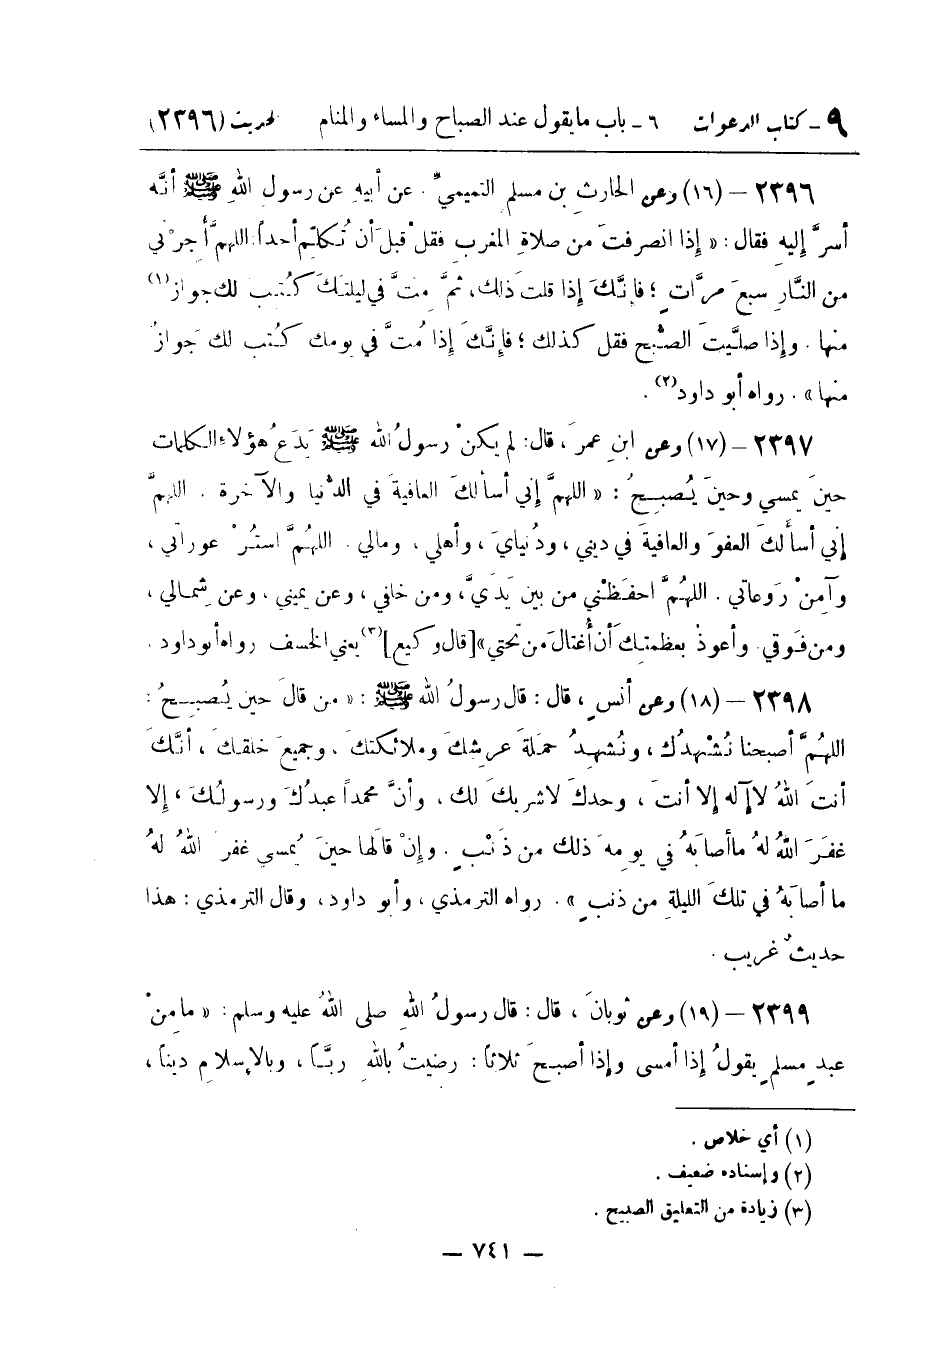 ٩ - كتاب الدعوات ٦ - باب ما يقول عند الصباح والمساء والمنام الحديث (٢٣٩٦)
٢٣٩٦ – (١٦) وعن الحارثِ بن مسلمٍ التميميّ. عن أبيهِ عن رسولِ اللهِ ﷺ أنَّه
أسرَّ إليهِ فقال: « إذا انصرفتَ من صلاةِ المغربِ فقلْ قبلَ أن تُكلّمَ أحداً: اللهمَّ أجرْني
من النَّارِ سبعَ مرَّاتٍ ؛ فإنَّكَ إذا قلتَ ذلكَ، ثمَّ متَّ في ليلتكَ كُتبَ لك جوازٌ(١)
منها . وإذا صلَّيتَ الصُّبحَ فقل كذلك ؛ فإنَّكَ إذا مُتَّ في يومك كُتب لك جوازٌ
منها» . رواه أبو داود(٢) .
٢٣٩٧ – (١٧) وعن ابنِ عمرَ، قال: لم يكنْ رسولُ الله ﷺ يَدَعُ هؤلاءِ الكلمات
حينَ يمسي وحينَ يُصبحُ : « اللهمَّ إني أسألكَ العافيةَ في الدُّنيا والآخرة . اللهمَّ
إني أسأَلكَ العفوَ والعافيةَ في ديني، ودُنيايَ، وأهلي، ومالي. اللهُمَّ استُرْ عوراتي،
وآمِنْ رَوعاتي . اللهُمَّ احفَظْني من بين يَدَيَّ، ومن خلفي، وعن يميني، وعن شمالي،
ومن فَوقي. وأعوذُ بعظمتِكَ أن أُغتالَ من تحتي» [قال وكيع](٣) يعني الخسف رواه أبو داود.
٢٣٩٨ – (١٨) وعن أنسٍ، قال: قال رسولُ الله ﷺ : « من قالَ حين يُصبِحُ:
اللهُمَّ أصبحنا نُشْهِدُك، ونُشهِدُ حمَلةَ عرشِكَ وملائكتكَ، وجميعَ خلقكَ، أنَّكَ
أنتَ اللهُ لا إله إلا أنتَ، وحدكَ لا شريكَ لك، وأنَّ محمداً عبدُكَ ورسولُكَ، إلا
غفَرَ اللهُ لهُ ما أصابَهُ في يومِهِ ذلك من ذَنْبٍ. وإنْ قالها حينَ يُمسي غفرَ اللهُ لهُ
ما أصابَهُ في تلكَ الليلةِ من ذنبٍ» . رواه الترمذي، وأبو داود، وقال الترمذي: هذا
حديثٌ غريب .
٢٣٩٩ – (١٩) وعن ثوبانَ، قال: قال رسولُ اللهِ صلى اللهُ عليه وسلم: « ما مِنْ
عبدٍ مسلمٍ يقولُ إذا أمسى وإذا أصبحَ ثلاثاً : رضيتُ باللهِ ربَّاً، وبالإسلامِ ديناً،
(١) أي خلاص .
(٢) وإسناده ضعيف .
(٣) زيادة من التعليق الصبيح .
— ٧٤١ —